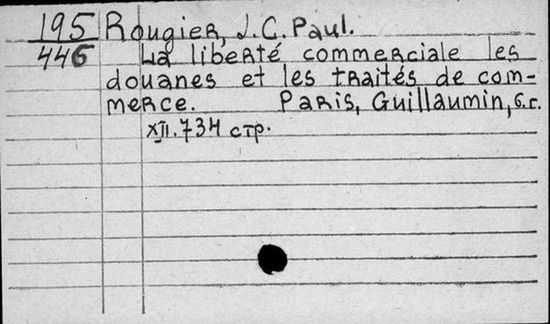 195 Rougier, J.C. Paul.
446 La liberté commerciale les
douanes et les traités de com-
merce. Paris, Guillaumin, б.г.
XII. 734 стр.